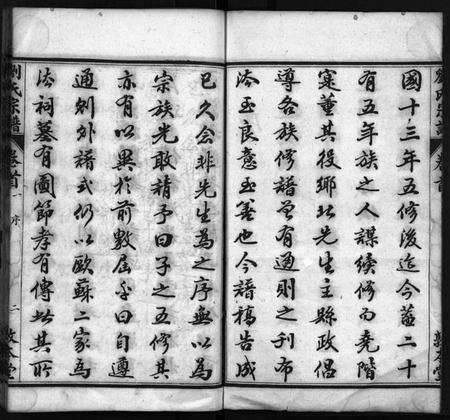 國十三年五修後迄今蓋二十
有五年族之人謀續修而堯階
寔董其役鄉北先生主縣政倡
遵各族修譜曾有通則之刊布
法至良意至善也今譜稿告成
已久会非先生為之序無以為
宗族光敢請予曰子之五修其
亦有以異於前數屆乎曰自遵
通例外譜式仍以歐蘇二家為
法祠墓有圖節孝有傳此其所
劉氏宗譜
卷首
序
二
敦本堂